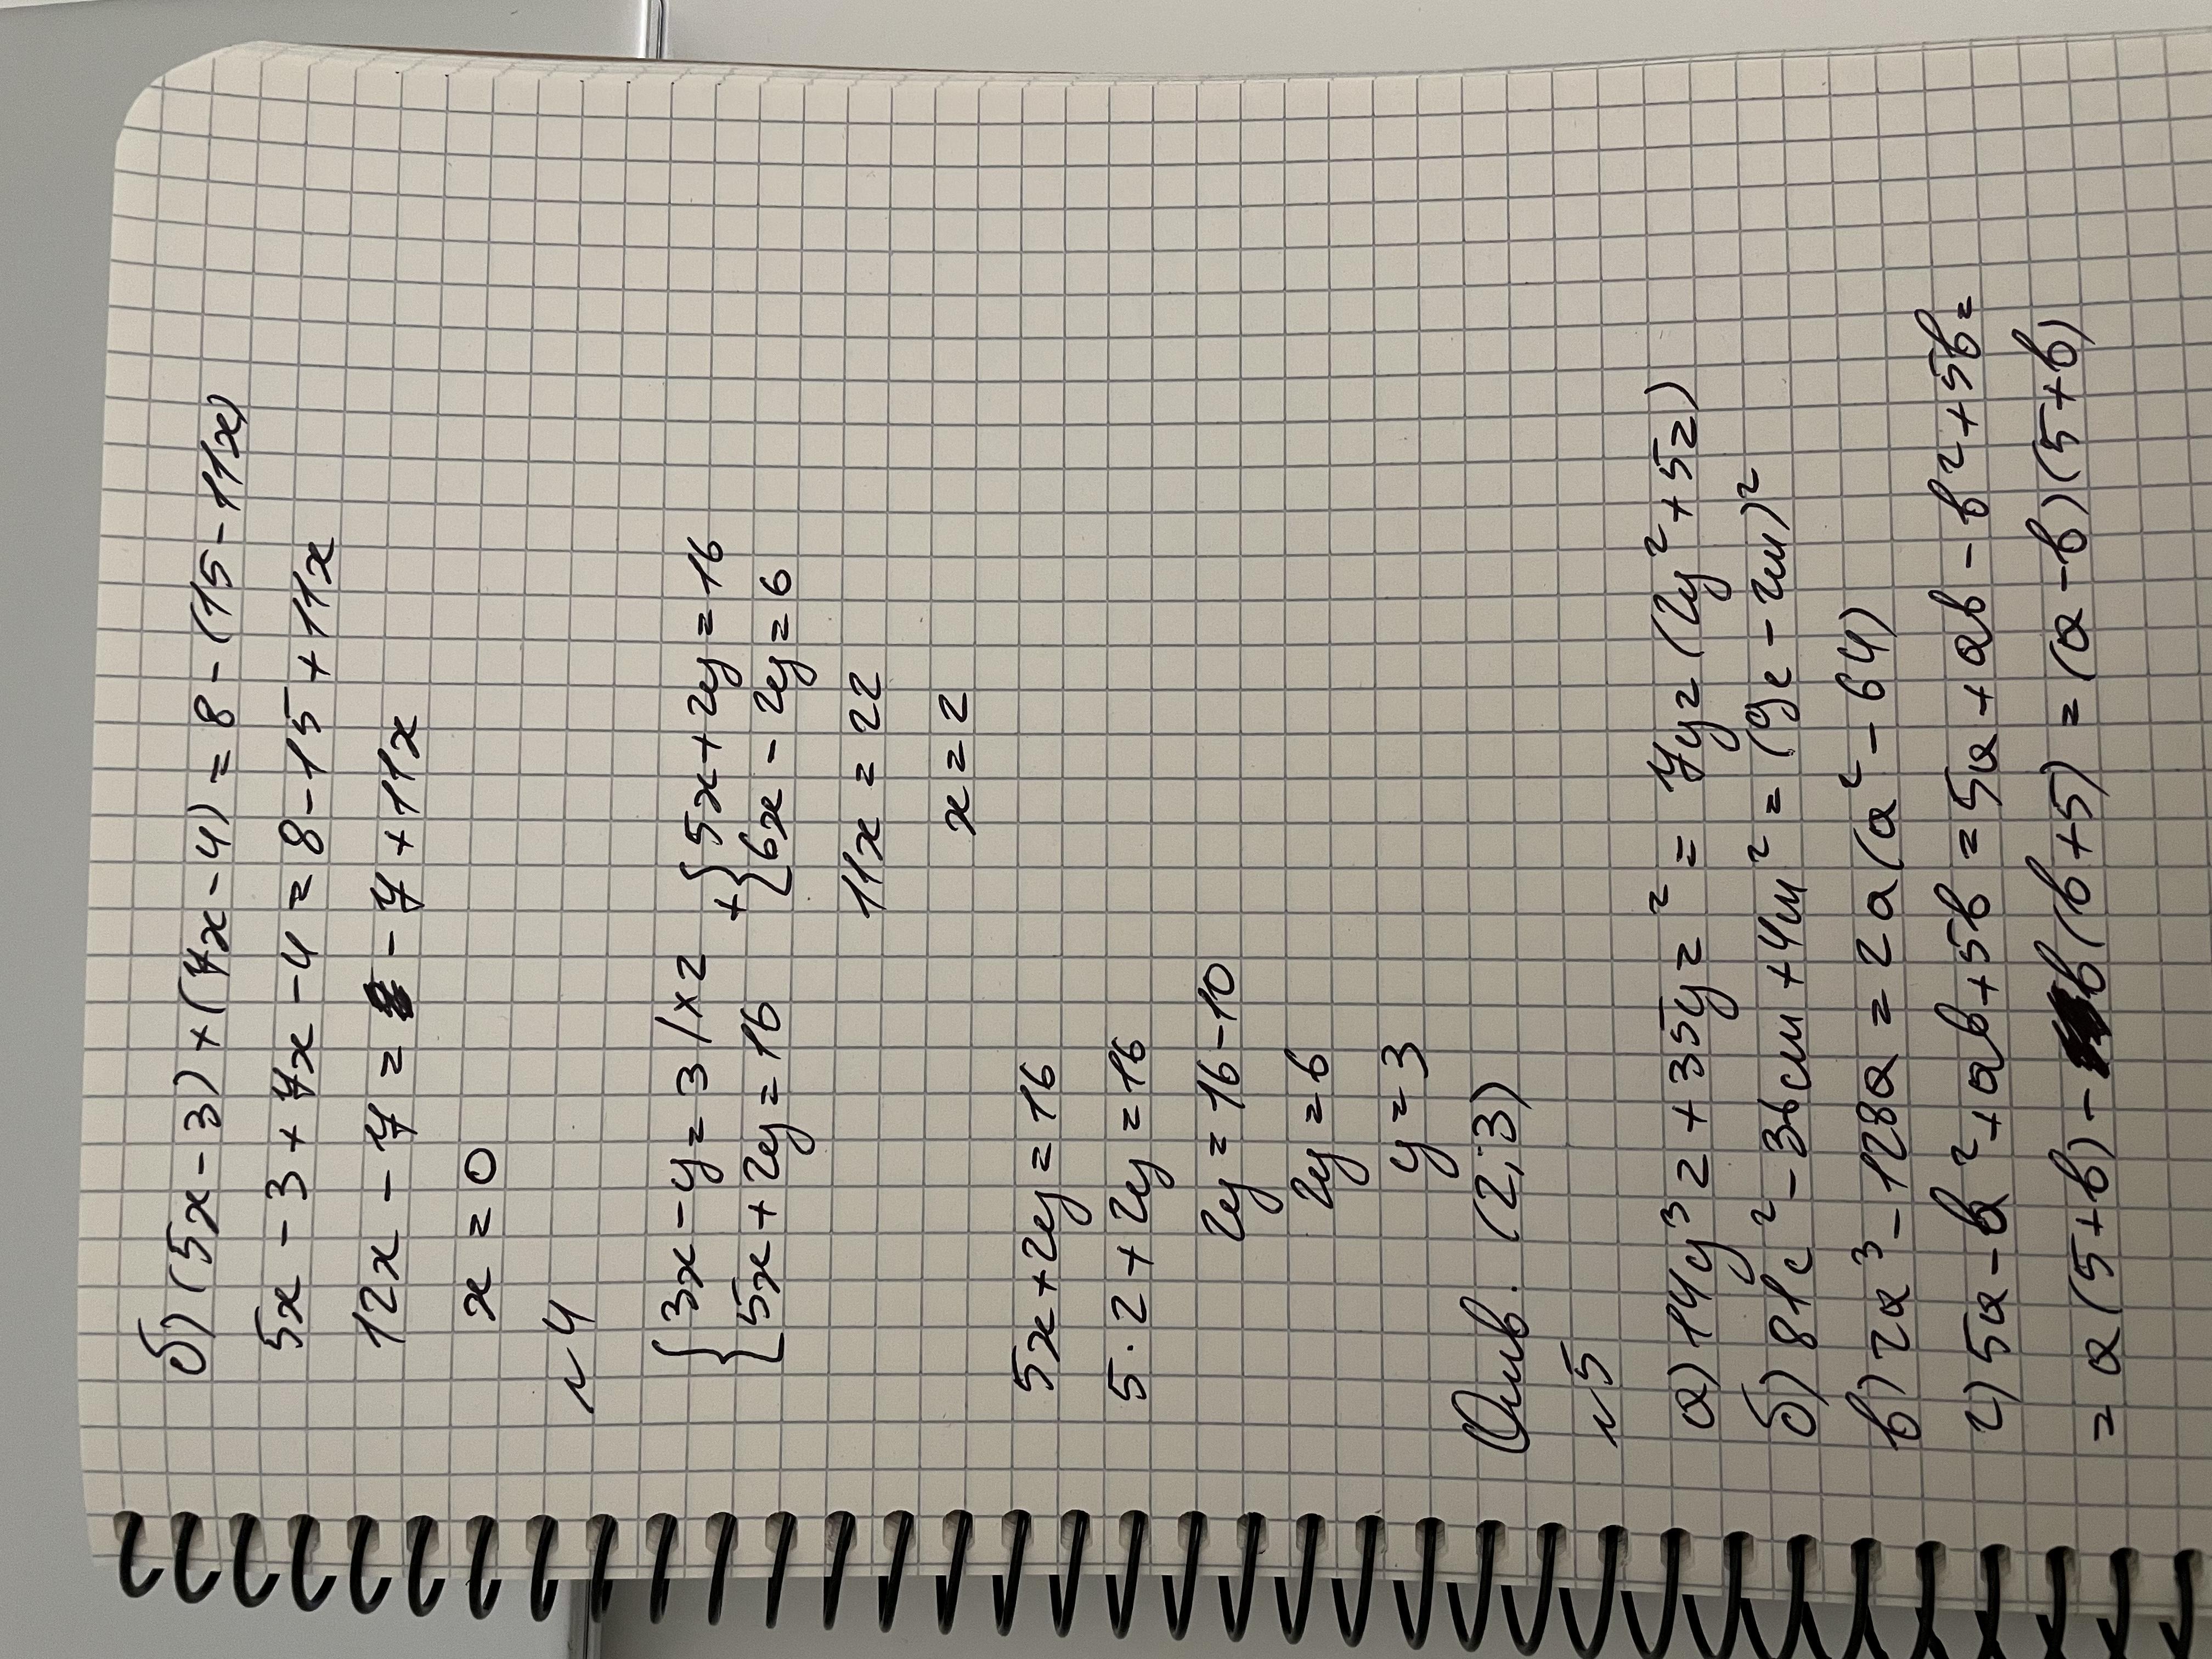 б) (5x-3)+(7x-4)=8-(15-11x)
5x-3+7x-4=8-15+11x
12x-7=-7+11x
x=0
№4
{3x-y=3 /×2
{5x+2y=16
+{5x+2y=16
{6x-2y=6
11x=22
x=2
5x+2y=16
5·2+2y=16
2y=16-10
2y=6
y=3
Отв. (2;3)
№5
а) 14y³z+35yz²=7yz(2y²+5z)
б) 81c²-36cm+4m²=(9c-2m)²
в) 2a³-128a=2a(a²-64)
г) 5a-b²+ab+5b=5a+ab-b²+5b=
=a(5+b)-b(b+5)=(a-b)(5+b)